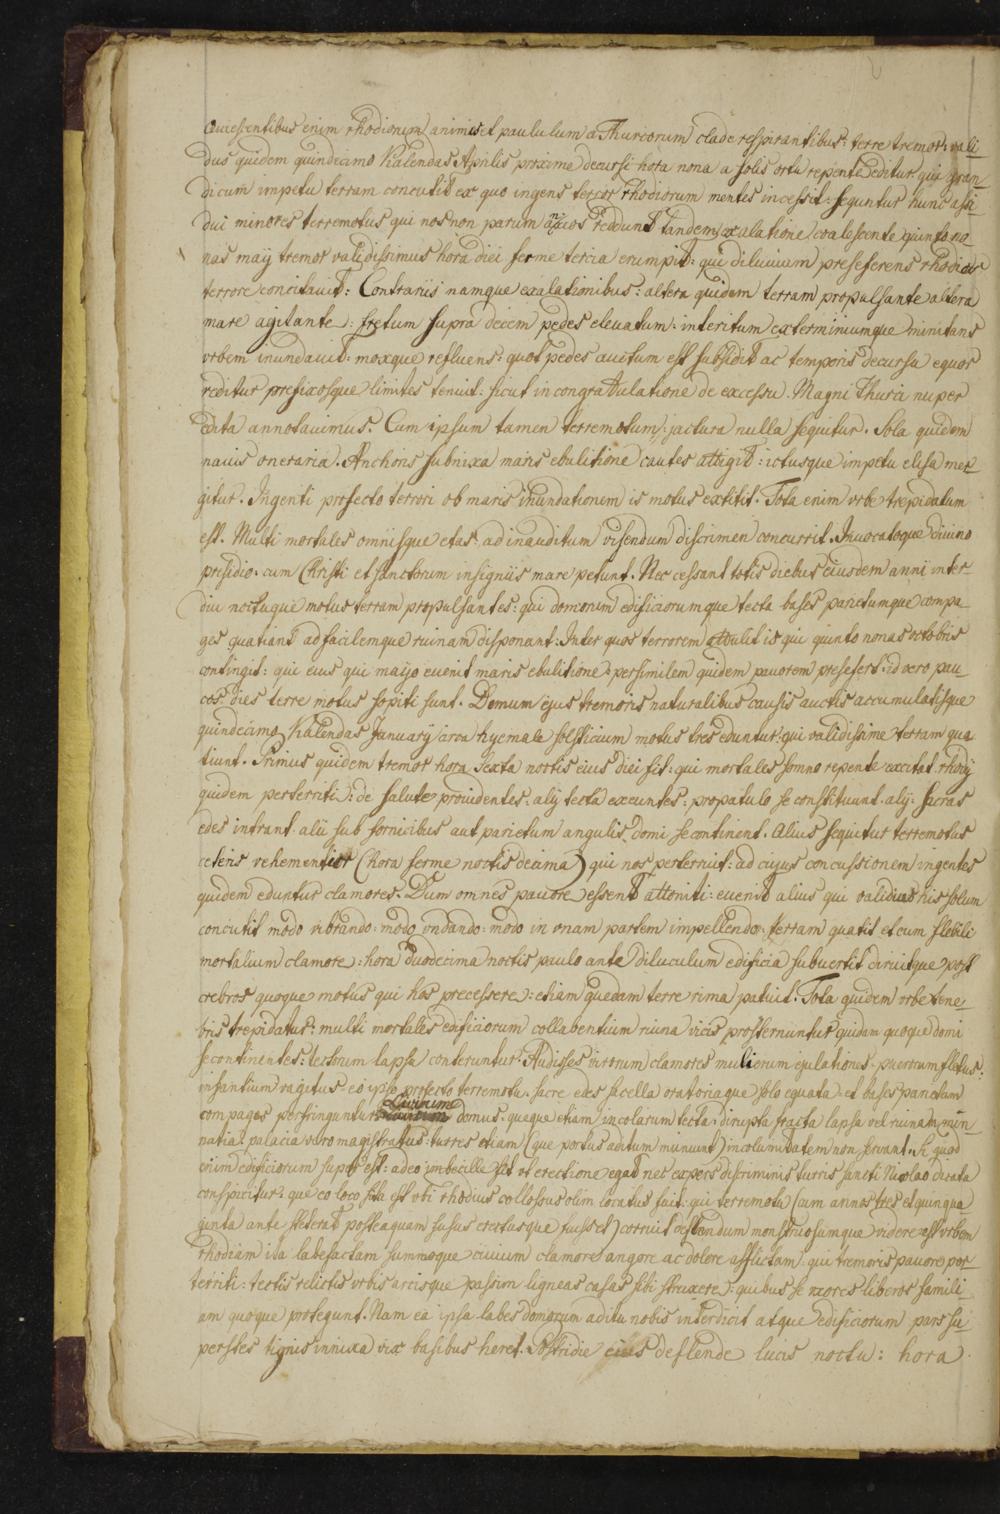 Quiescentibus enim rhodiorum animis et paululum a Thurcorum clade respirantibus: terre tremor: vali-
dus quidem quindecimo Kalendas Aprilis proxime decursi hora nona a solis ortu repente editur qui gran-
dicum impetu terram concutit ex quo ingens terror rhodiorum mentes incessit: sequntur hunc assi-
dui minores terremotus qui nos non parum anxios reddunt tandem exalatione coalescente quinto no-
nas maij tremor validissimus hora diei ferme tercia erumpit: qui diluvium preseferens rhodios
terrore concitavit: Contrariis namque exalationibus: altera quidem terram propulsante altera
mare agitante: fretum supra decem pedes elevatum: interitum exterminiumque minitans
urbem inundavit: moxque refluens: quot pedes auctum est subsidit ac temporis decursu equor
reditur prefixosque limites tenuit: sicut in congratulatione de excessu Magni Thurci nuper
edita annotavimus. Cum ipsum tamen terremotum: jactura nulla sequitur. Sola quidem
navis oneraria. Anchoris subnixa maris ebulitione cautes attigit: ictusque impetu elisa mer-
gitur. Ingenti profecto terrori ob maris inundationem is motus extitit. Tota enim urbe trepidatum
est. Multi mortales omnisque etas: ad inauditum visendum discrimen concurrit. Invocatoque divino
presidio. cum Christi et sanctorum insigniis mare petunt. Nec cessant totis diebus eiusdem anni inter-
diu noctuque motus terram propulsantes: qui domorum edificiorumque tecta bases parietumque compa-
ges quatiant ad facilemque ruinam disponant: Inter quos terrorem attulit is qui quinto nonas octobris
contingit: qui eius qui maijo evenit maris ebulitione persimilem quidem pavorem presefert: id vero pau-
cos dies terre motus sopiti sunt. Demum ejus tremoris naturalibus causis auctis accumulatisque
quindecimo Kalendas Januarij circa hyemale solsticium motus tres eduntur: qui validissime terram qua
tiunt. Primus quidem tremor hora sexta noctis eius diei fit: qui mortales somno repente excitat. rhodij
quidem perterriti: de salute providentes. alij tecta exeuntes: propatulo se constituunt. alij. sacras
edes intrant. alii sub fornicibus aut parietum angulis domi se continent. Alius sequitur terremotus
ceteris vehementior (hora ferme noctis decima) qui nos perterruit: ad cujus concussionem ingentes
quidem eduntur clamores. Dum omnes pavore essent attoniti: evenit alius qui validius his solum
concutit modo vibrando: modo undando: modo in unam partem impellendo: terram quatit et cum flebili
mortalium clamore: hora duodecima noctis paulo ante diluculum edificia subvertit diruitque post
crebros quoque motus qui hos precessere: etiam quedam terre rima patuit. Tota quidem urbe tene
bris trepidatur: multi mortales edificiorum collabentium riuna vicis prosternuntur quidam quoque domi
se continentes: tectorum lapsu conteruntur. Audisses virorum clamores mulierum ejulationes: puerorum fletus:
infantium vagitus eo ipso profecto terremotu. sacre edes sacella oratoriaque solo equata et bases parietum
compages perfringuntur: divinum domus: queque etiam incolarum tecta: dirupta fracta lapsa vel ruinam min-
natia: palacia vero magistratus: turres etiam (que portus aditum minuunt) incolumitatem non servant. Si quod
enim edificiorum super est: adeo imbecille est ut erectione egeat nec expers discriminis turris sancti Nicolao dicata
conspicitur: que eo loco sita est uti rhodius collossus olim locatus fuit: qui terremotu (cum annos tres et quinqua
ginta ante steterat posteaquam fusus erectusque fuisset) corruit deflendum monstruosumque videre est urbem
Rhodiam ita labefactam summoque civium clamore angore ac dolore afflictam: qui tremoris pavore per-
territi: tectis relictis urbis arcisque passim ligneas casas sibi struxere: quibus se uxores liberos famili-
am quoque protegunt. Nam ea ipsa labes domorum aditu nobis interdicit atque edificiorum pars su-
perstes tignis innixa vix basibus heret. Postridie eius deflende lucis noctu: hora